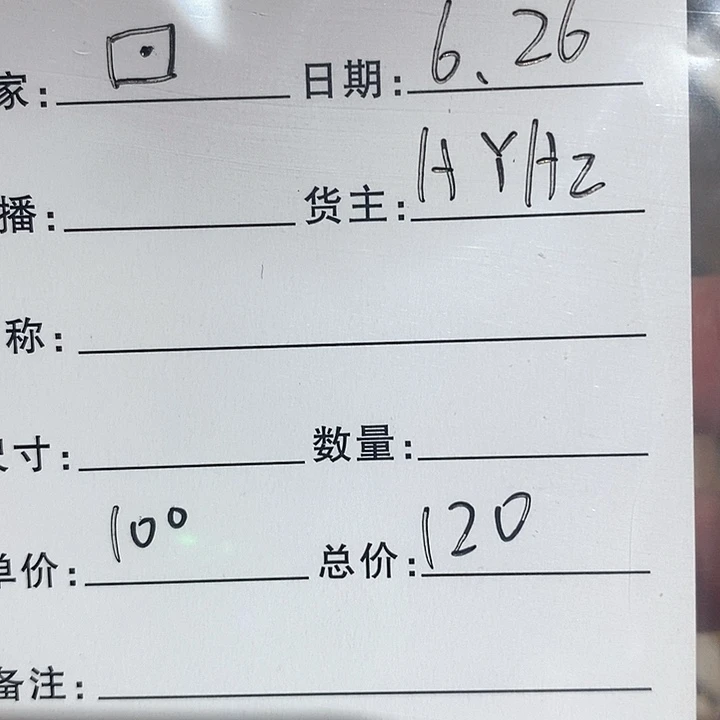 家: 日期: 6.26
播: 货主: HYHz
称:
尺寸: 数量:
单价: 100 总价: 120
备注: